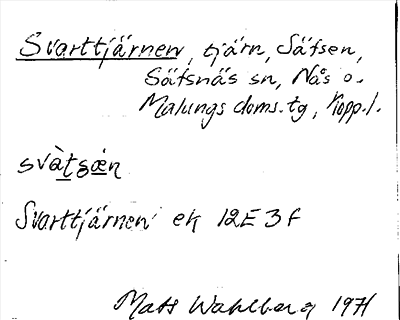 Svarttjärnen, tjärn, Säfsen,
Säfsnäs sn, Nås o.
Malungs doms.tg, Kopp.l.
svàtsǽn
Svarttjärnen ek 12E 3f
Mats Wahlberg 1971